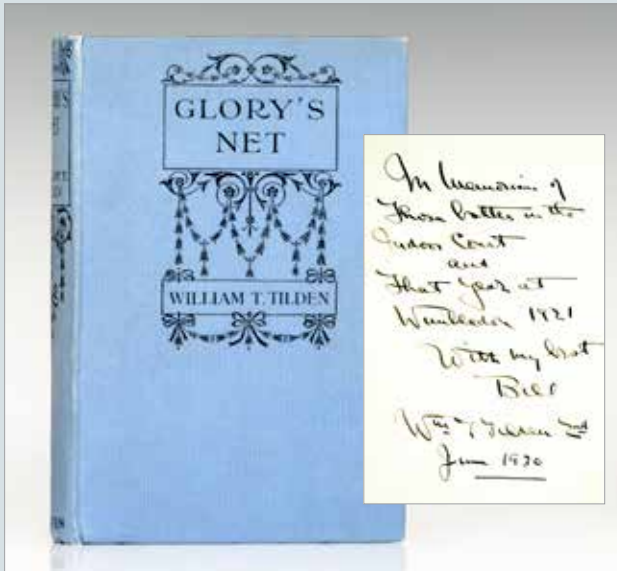 GLORY'S
NET
WILLIAM T. TILDEN
In Memoriam of
Those battles in the
Indoor Court
and
That year at
Wimbledon 1921
With my best
Bill
Wm T Tilden 2nd
June 1930